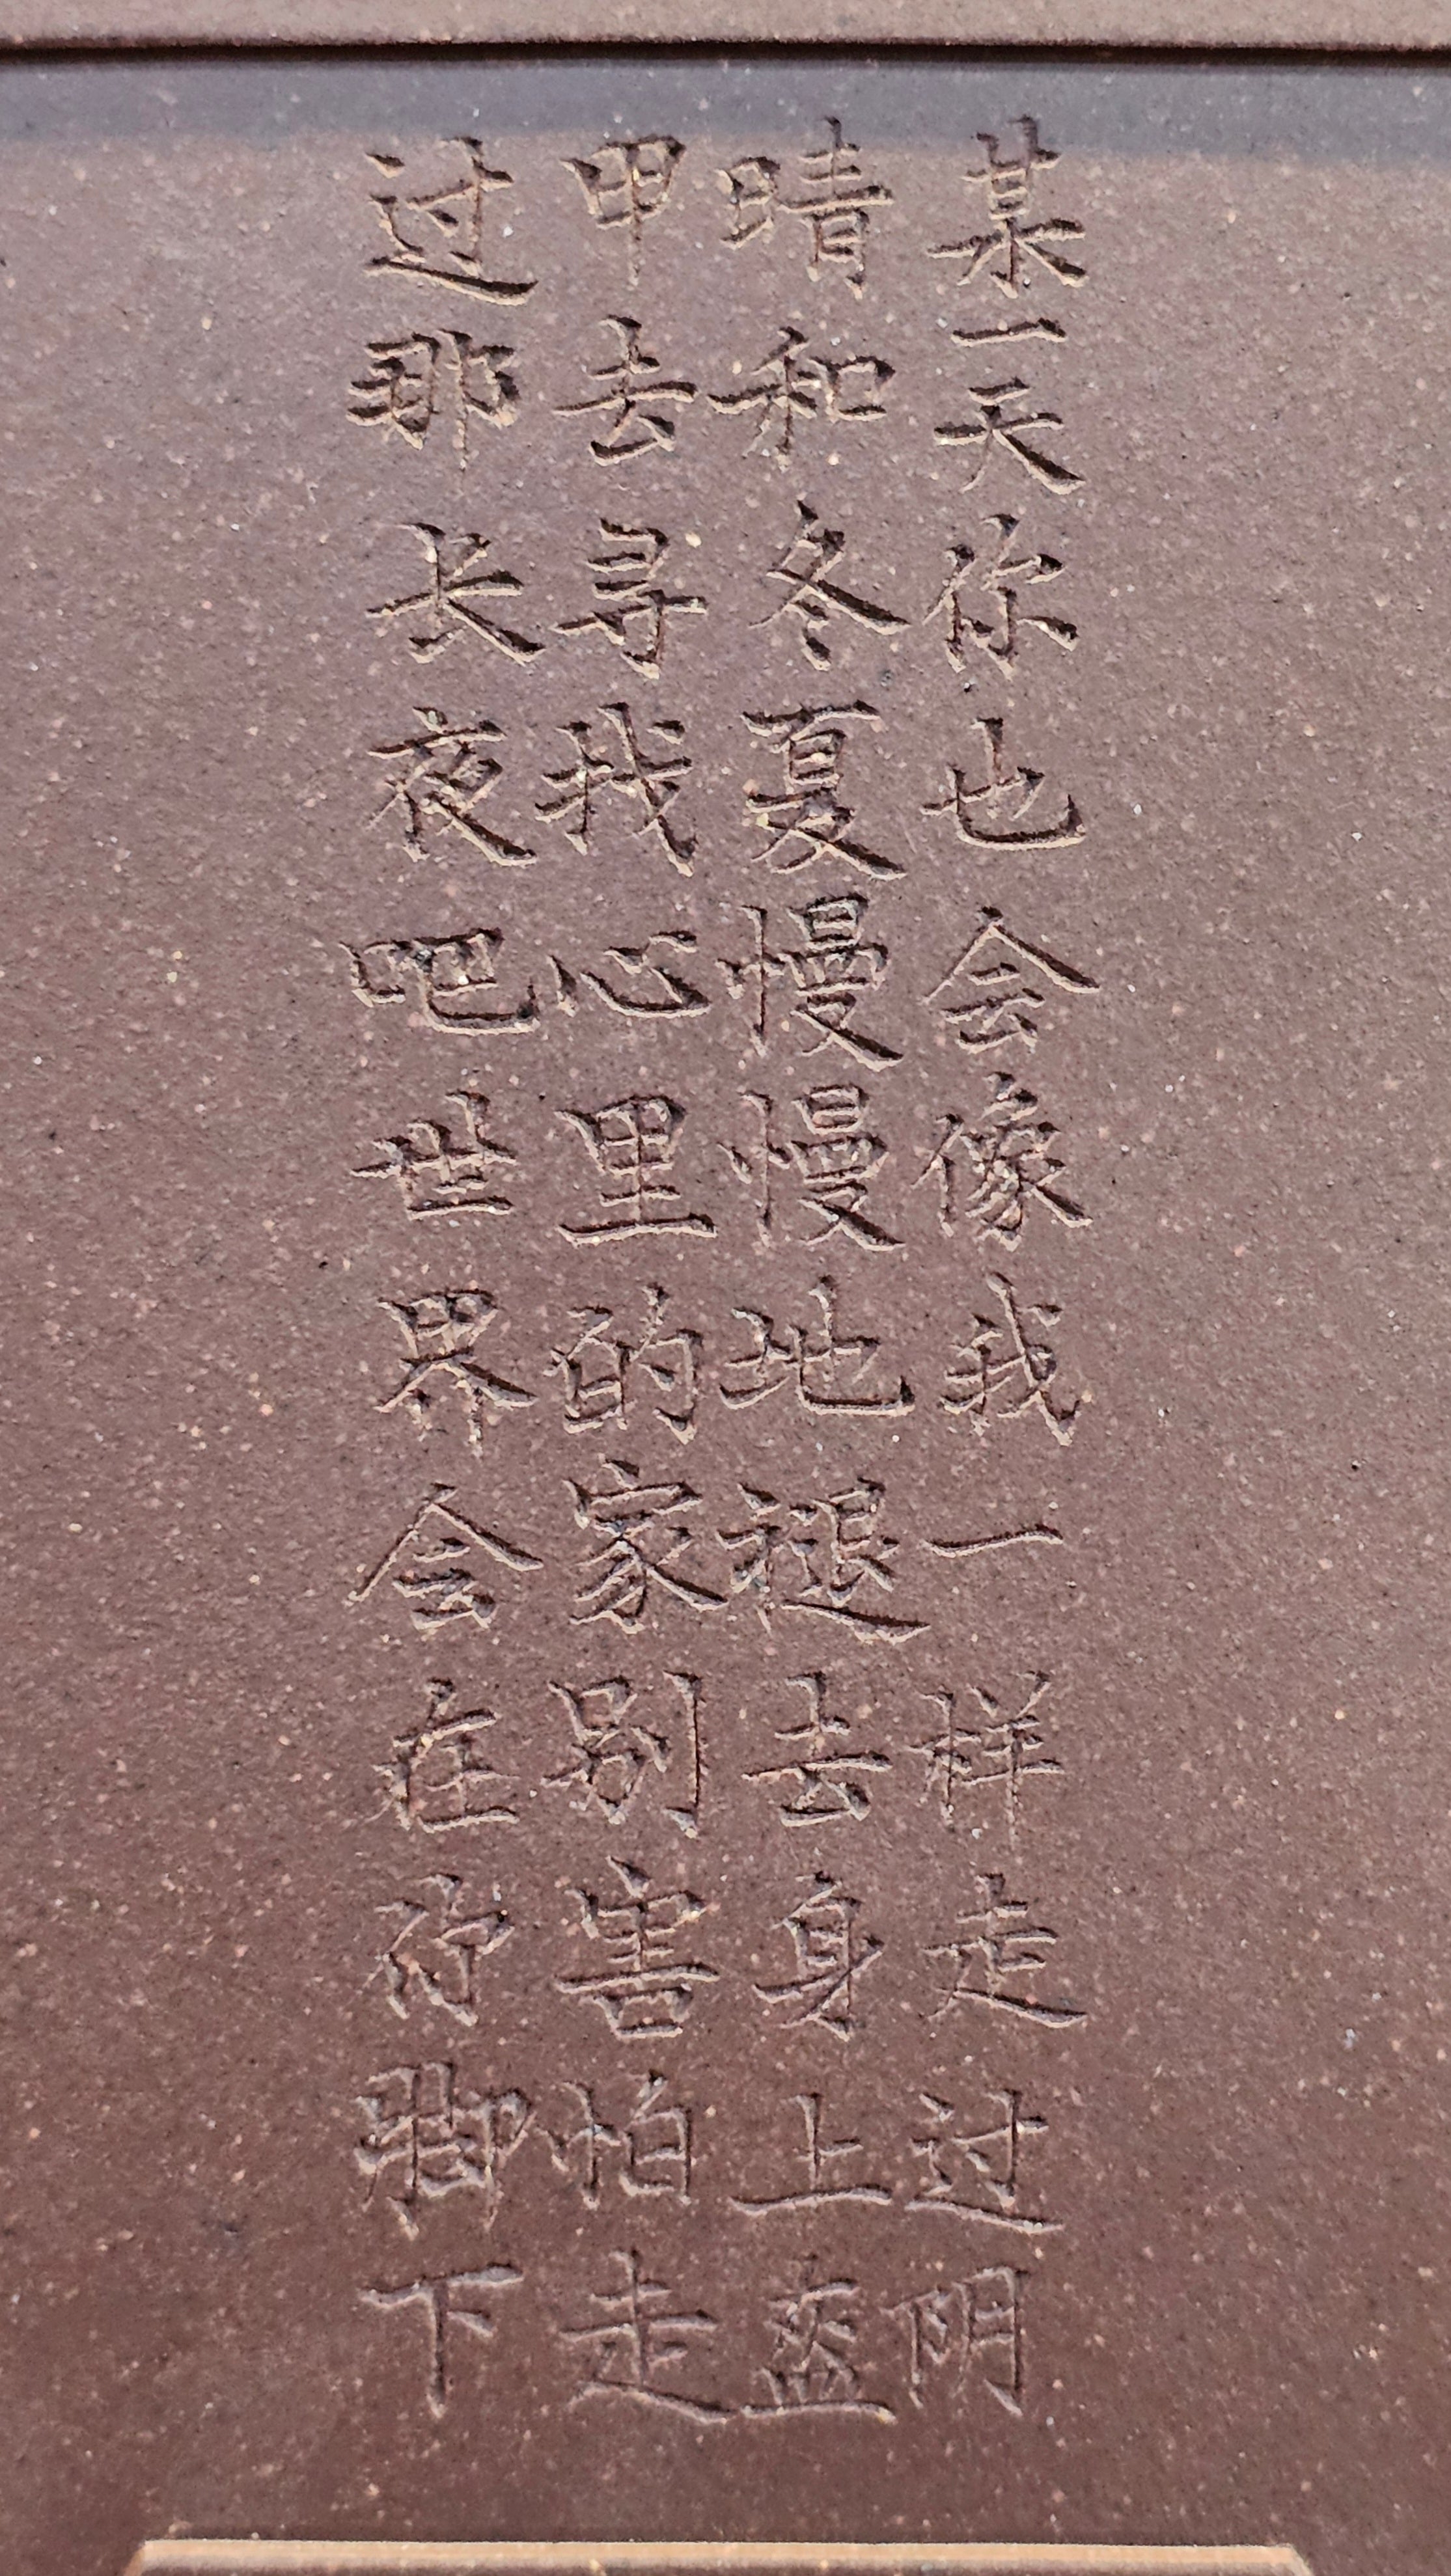 某一天你也会像我一样走过阴
晴和冬夏慢慢地褪去身上盔
甲去寻我心里的家别害怕走
过那长夜吧世界会在你脚下